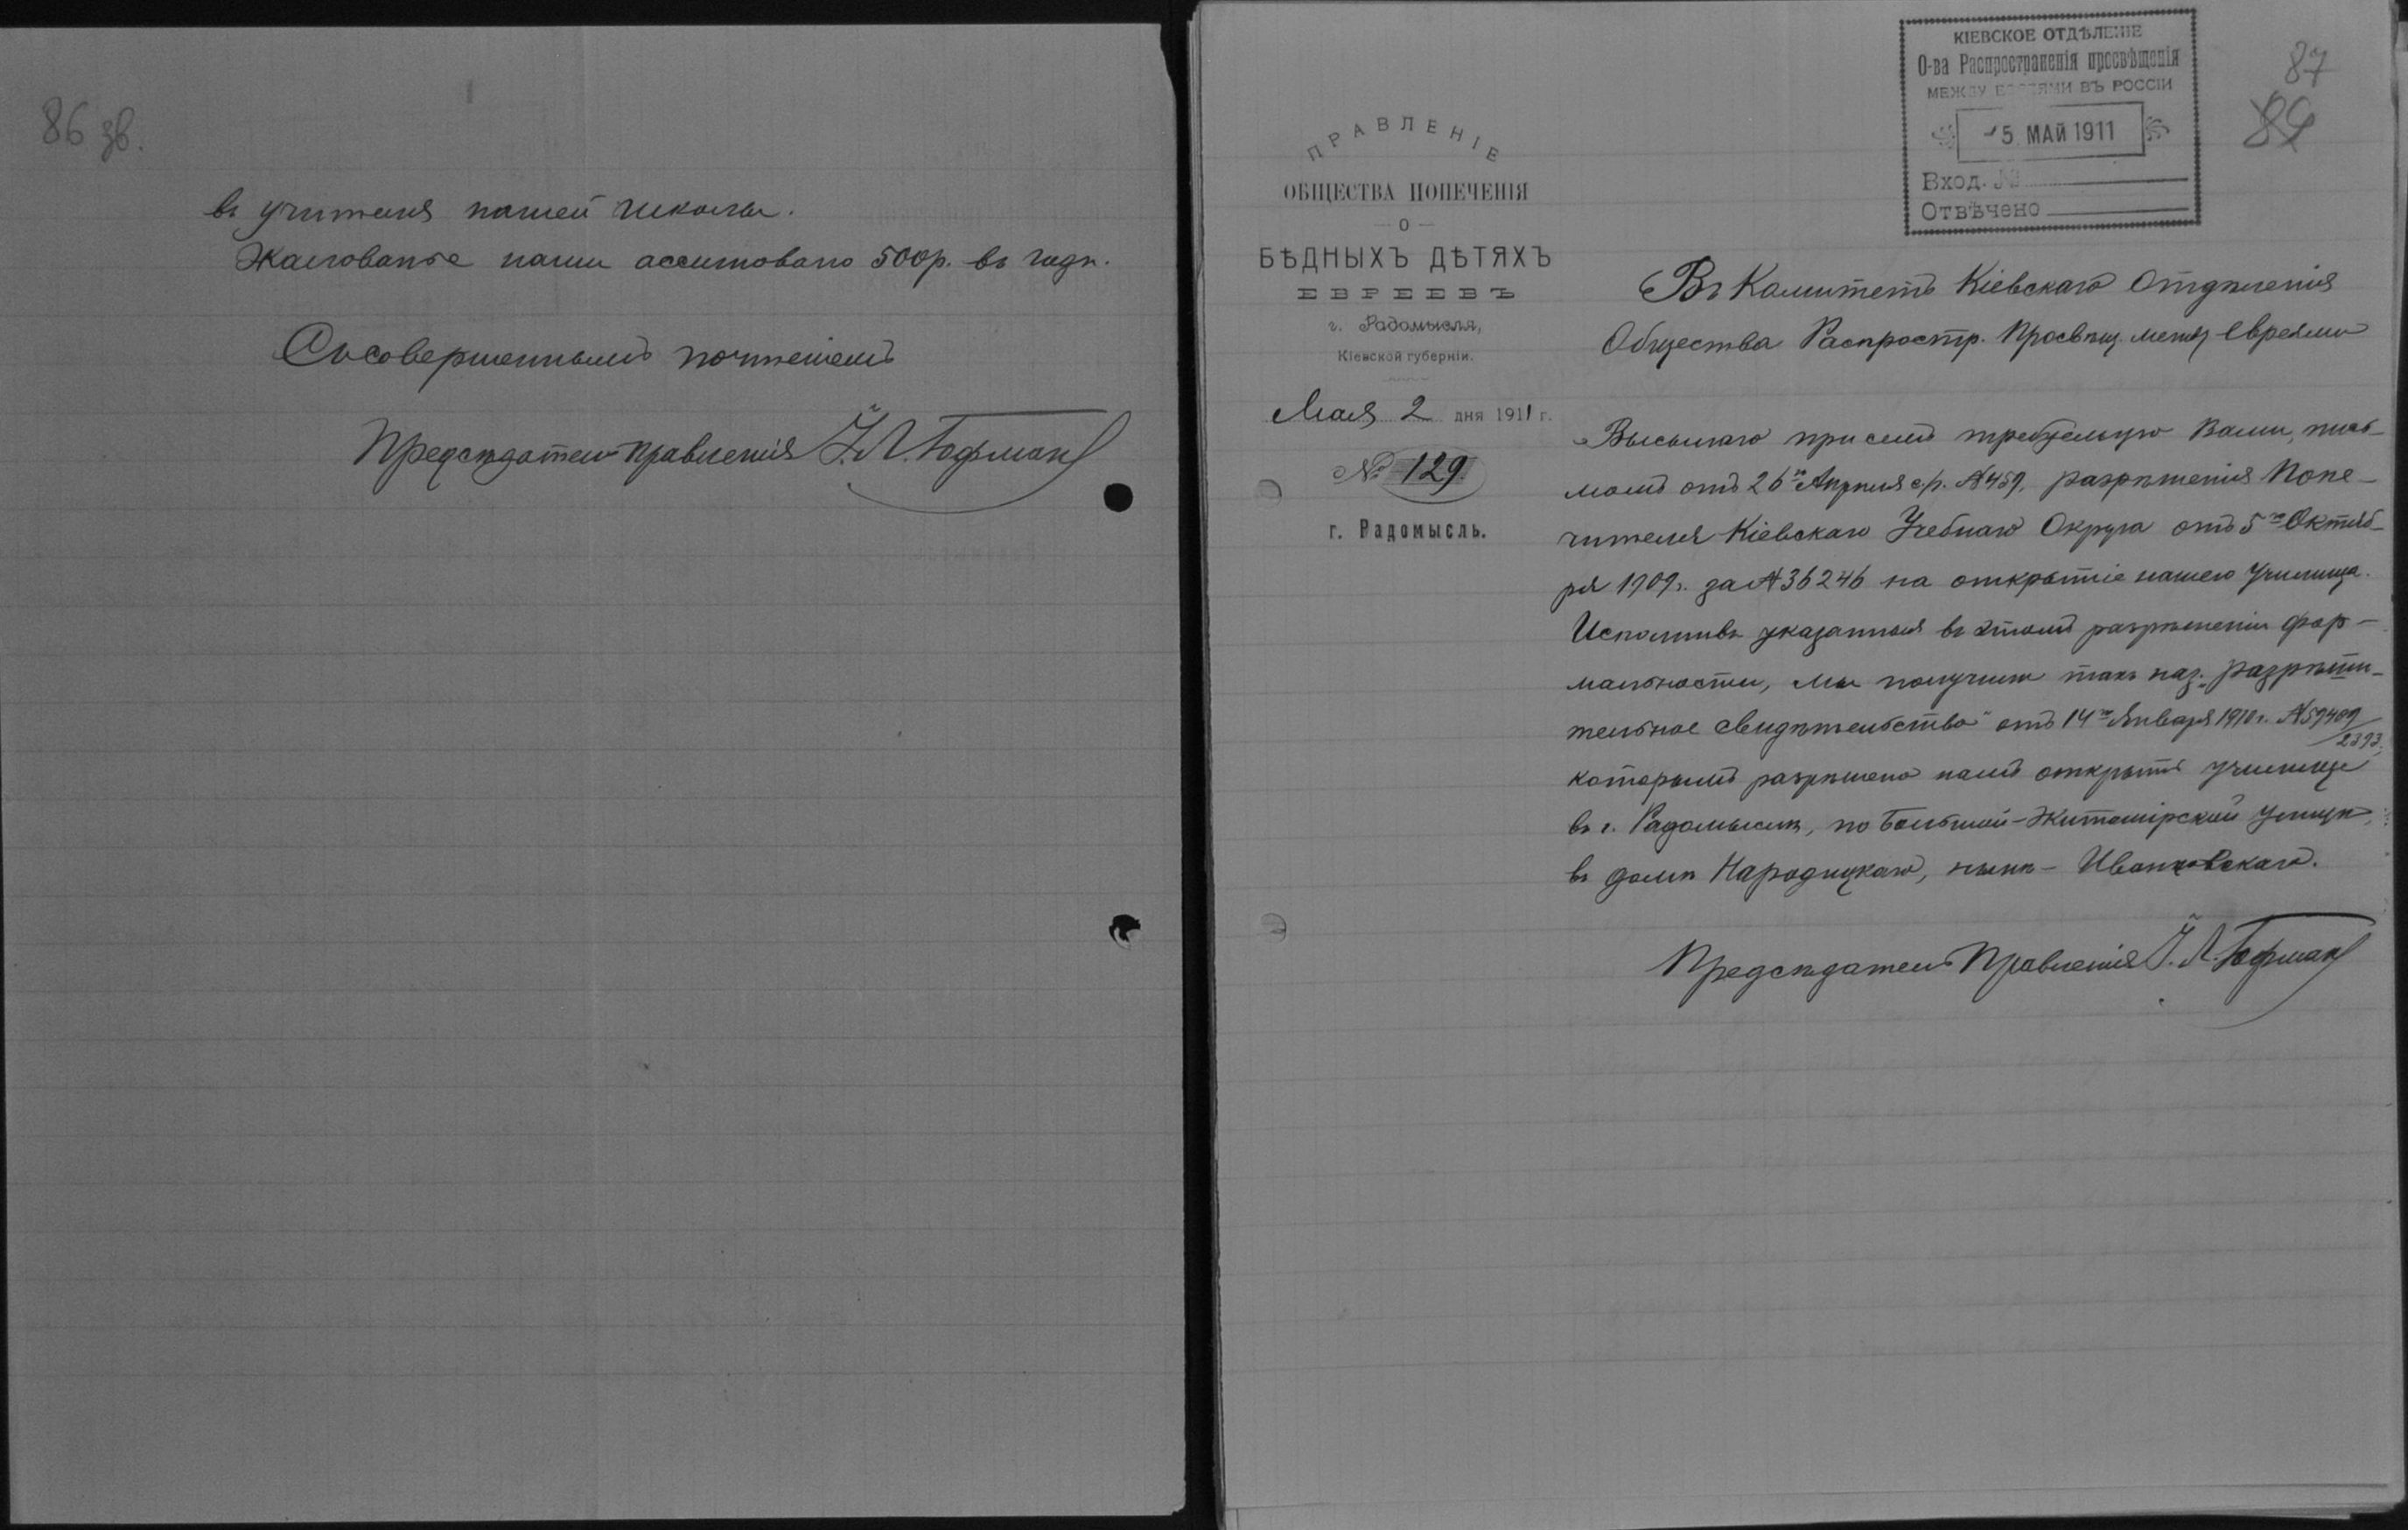 86 зв.
въ учителя нашей школы.
Жалованье нами ассигновано 500р. въ годъ.
Съ совершеннымъ почтеніемъ
Предсѣдатель Правленія І. Л. Гофман
КІЕВСКОЕ ОТДѢЛЕНІЕ
О-ва Распространенія просвѣщенія
МЕЖДУ ЕВРЕЯМИ ВЪ РОССІИ
5 МАЙ 1911
Вход. №
Отвѣчено
87
ПРАВЛЕНІЕ
ОБЩЕСТВА ПОПЕЧЕНІЯ
О
БѢДНЫХЪ ДѢТЯХЪ
ЕВРЕЕВЪ
г. Радомысля,
Кіевской губерніи.
Мая 2 дня 1911 г.
№ 129.
г. Радомысль.
Въ Комитетъ Кіевскаго Отдѣленія
Общества Распростр. Просвѣщ. между Евреями
Высылаю при семъ требуемую Вами, пись-
момъ отъ 26го Апрѣля с/г. №459, разрѣшенія Попе-
чителя Кіевскаго Учебнаго Округа отъ 5го Октяб-
ря 1909г. за №36246 на открытіе нашего Училища.
Исполнивъ указанныя въ этомъ разрѣшеніи фор-
мальности, мы получили такъ наз. „разрѣши-
тельное свидѣтельство" отъ 14го Января 1910г. №59409/2393,
которымъ разрѣшено намъ открыть училище
въ г. Радомыслѣ, по Большой-Житомірской улицѣ,
въ домѣ Народицкаго, нынѣ - Иванковскаго.
Предсѣдатель Правленія І. Л. Гофман